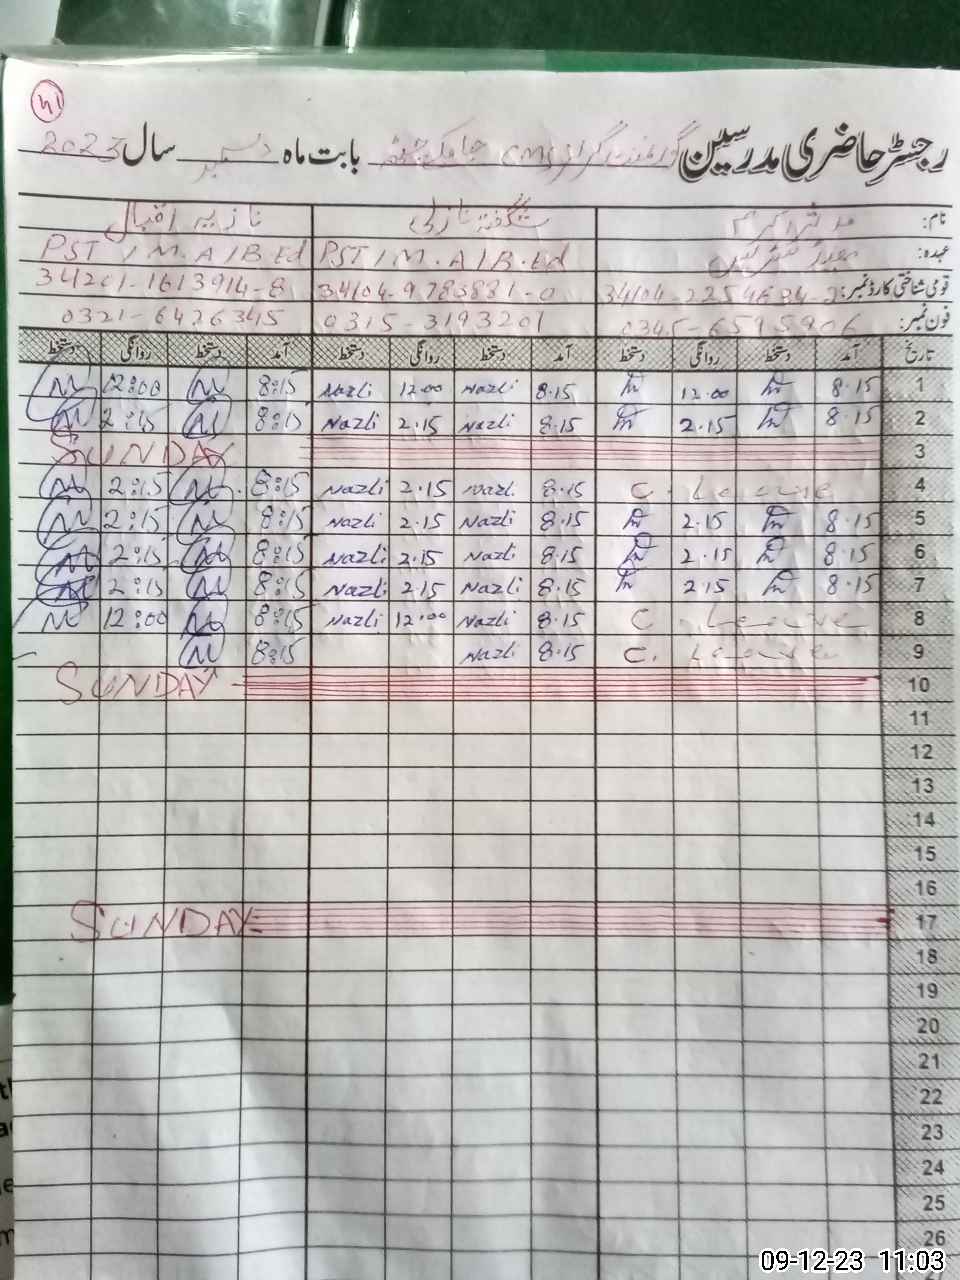 ۱۴
رجسٹر حاضری مدرسین گورنمنٹ گرلز CMS جامکے چٹھہ بابت ماہ دسمبر سال 2023
نام: شگفتہ نازلی نازیہ اقبال
عہدہ: ہیڈ مسٹریس PST / M.A / B.Ed PST / M.A / B.Ed
قومی شناختی کارڈ نمبر: 34104-2254684-2 34104-9783881-0 34201-1613914-8
فون نمبر: 0345-6595906 0315-3193201 0321-6426345
تاریخ آمد دستخط روانگی دستخط آمد دستخط روانگی دستخط آمد دستخط روانگی دستخط
1 8.15 12.00 8.15 Nazli 12.00 Nazli 8:15 12:00
2 8.15 2.15 8.15 Nazli 2.15 Nazli 8:15 2:15
3 SUNDAY
4 C. Leave 8.15 Nazli 2.15 Nazli 8:15 2:15
5 8.15 2.15 8.15 Nazli 2.15 Nazli 8:15 2:15
6 8.15 2.15 8.15 Nazli 2.15 Nazli 8:15 2:15
7 8.15 2.15 8.15 Nazli 2.15 Nazli 8:15 2:15
8 C Leave 8.15 Nazli 12.00 Nazli 8:15 12:00
9 C. Leave 8.15 Nazli 8:15
10 SUNDAY
11
12
13
14
15
16
17 SUNDAY
18
19
20
21
22
23
24
25
26
09-12-23 11:03